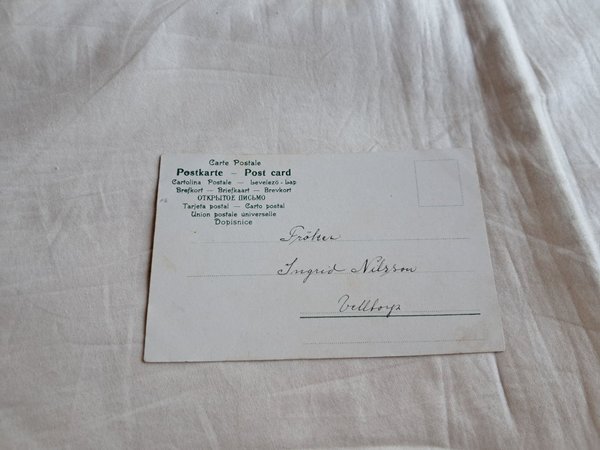 Carte Postale
Postkarte – Post card
Cartolina Postale – Levelező-Lap
Brefkort – Briefkaart – Brevkort
ОТКРЫТОЕ ПИСЬМО
Tarjeta postal – Carto postal
Union postale universelle
Dopisnice
Fröken
Ingrid Nilsson